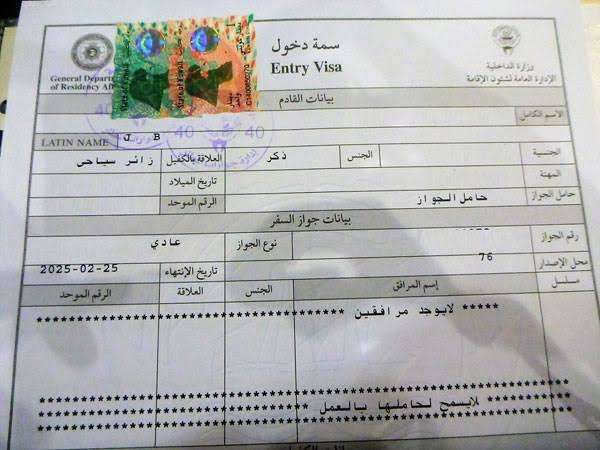 سمة دخول
Entry Visa
وزارة الداخلية
الإدارة العامة لشئون الإقامة
General Depar
of Residency Aff
بيانات القادم
الاسم الكامل
LATIN NAME J B
الجنسية
الجنس ذكر
العلاقة بالكفيل زائر سياحي
المهنة
تاريخ الميلاد
حامل الجواز حامل الجواز
الرقم الموحد
بيانات جواز السفر
رقم الجواز
نوع الجواز عادي
محل الإصدار 76
تاريخ الإنتهاء 2025-02-25
مسلسل إسم المرافق الجنس العلاقة الرقم الموحد
***** لايوجد مرافقين *****************************
***** لايسمح لحاملها بالعمل *****
40 40